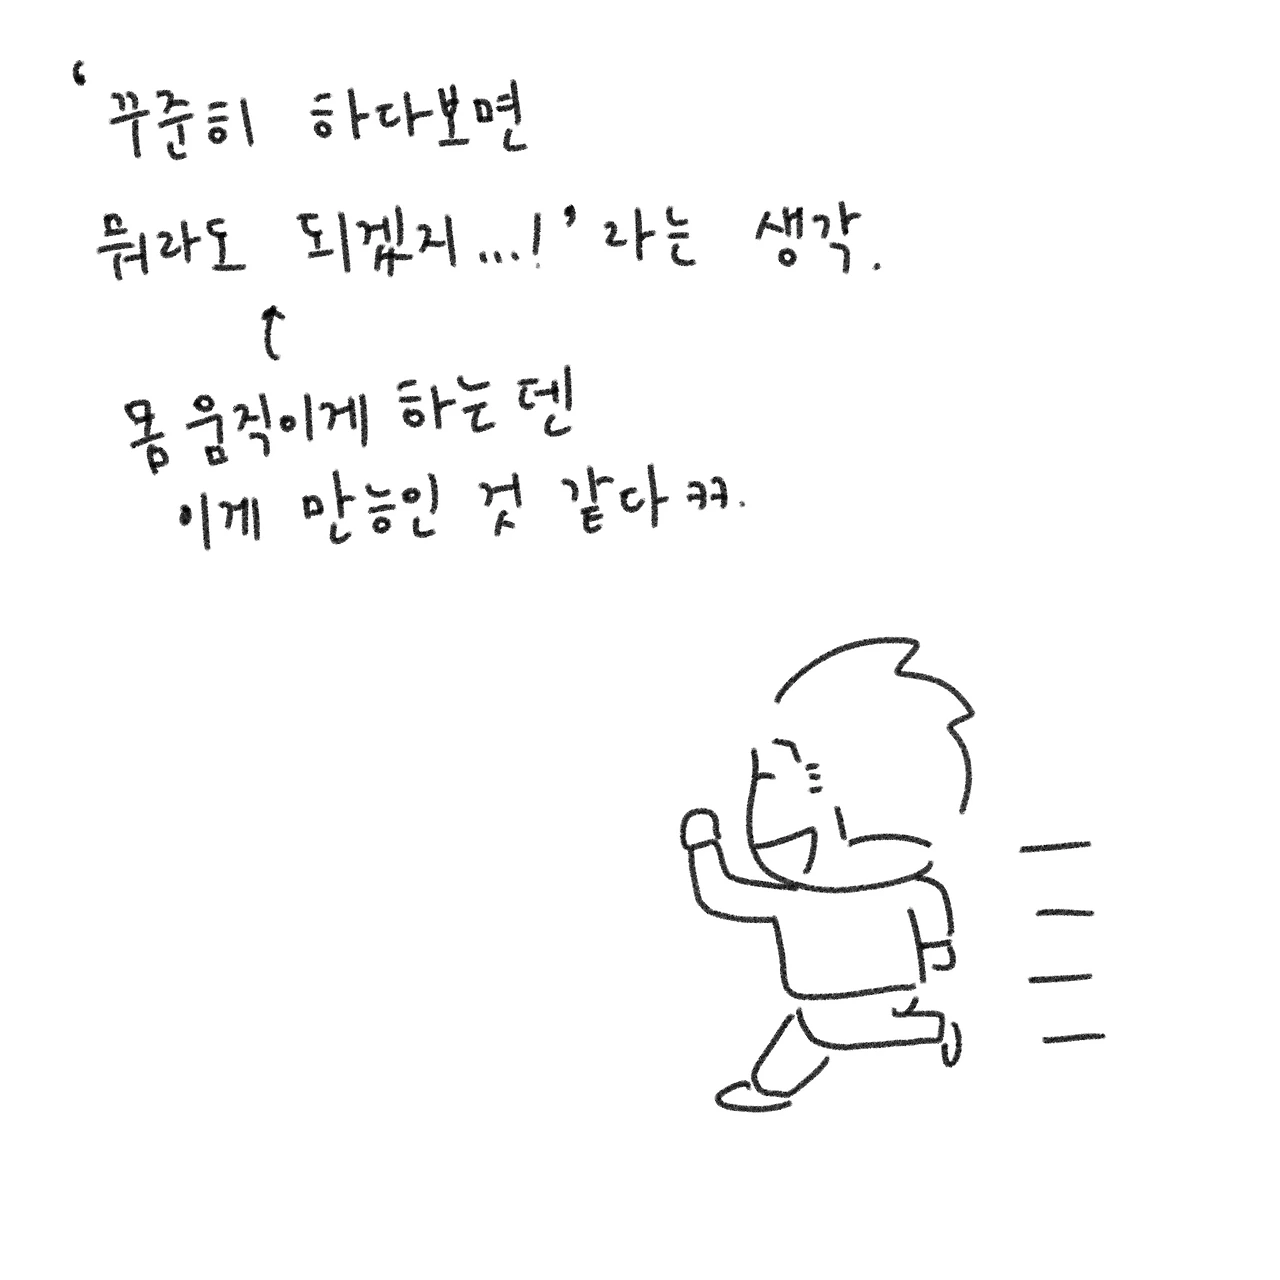 ‘꾸준히 하다보면
뭐라도 되겠지...!’ 라는 생각.
↑
몸 움직이게 하는덴
이게 만능인 것 같다ㅋㅋ.